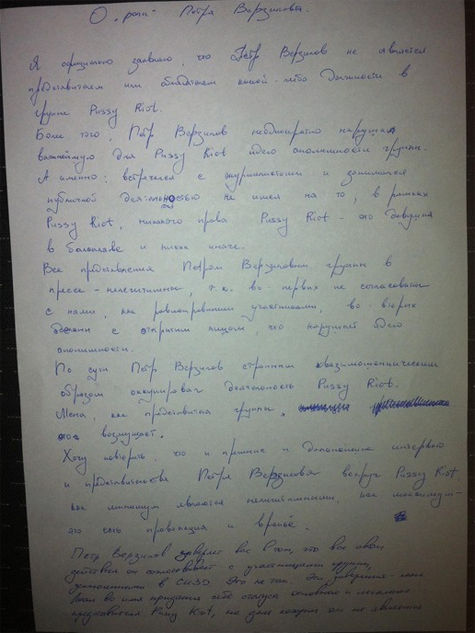 О роли Петра Верзилова.
Я официально заявляю, что Пётр Верзилов не является
представителем или обладателем какой-либо должности в
группе Pussy Riot.
Более того, Пётр Верзилов неоднократно нарушал
важнейшую для Pussy Riot идею анонимности группы.
А именно: встречался с журналистами и занимался
публичной деятельностью не имея на то, в рамках
Pussy Riot, никакого права. Pussy Riot - это девушки
в балаклаве и никак иначе.
Все предъявления Петром Верзиловым группы в
прессе - нелегитимны, т.к. во-первых не согласованы
с нами, как равноправными участниками, во-вторых
с открытым лицом, что нарушает идею
анонимности.
По сути Пётр Верзилов странным квазимошенническим
образом оккупировал деятельность Pussy Riot.
Меня, как представителя группы,
это возмущает.
Хочу повторить, что и прошлые и дополнение интервью
и представительства Петра Верзилова вокруг Pussy Riot
как минимум являются нелегитимными, как максимум -
это есть провокация и враньё.
Пётр Верзилов уверяет вас в том, что все свои
действия он согласовывает с участницами группы,
заключёнными в СИЗО. Это не так. Эти заверения - ложь
во имя придания себе статуса основного и легального
представителя Pussy Riot, на деле которым он не является